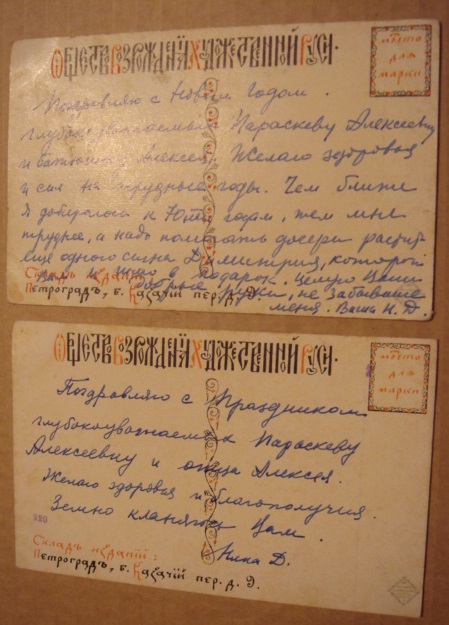 Общество Возрождения Художественной Руси.
Место
для
марки
Поздравляю с Новым Годом.
глубокоуважаемых Параскеву Алексеевну
и батюшку Алексея. Желаю здоровья
и сил на трудные годы. Чем ближе
я добираюсь к 70ти годам, тем мне
труднее, а надо помогать дочери растить
ещё одного сына Димитрия, которой
в подарок. Целую Ваши
Складъ изданій:
добрые руки, не забывайте
Петроградъ, Б. Казачій пер. д. 9.
меня. Ваша Н. Д.
Общество Возрождения Художественной Руси.
Место
для
марки
Поздравляю с Праздником
глубокоуважаемых Параскеву
Алексеевну и отца Алексея.
Желаю здоровья и благополучия.
Земно кланяюсь Вам.
Нина Д.
Складъ изданій:
Петроградъ, Б. Казачій пер. д. 9.